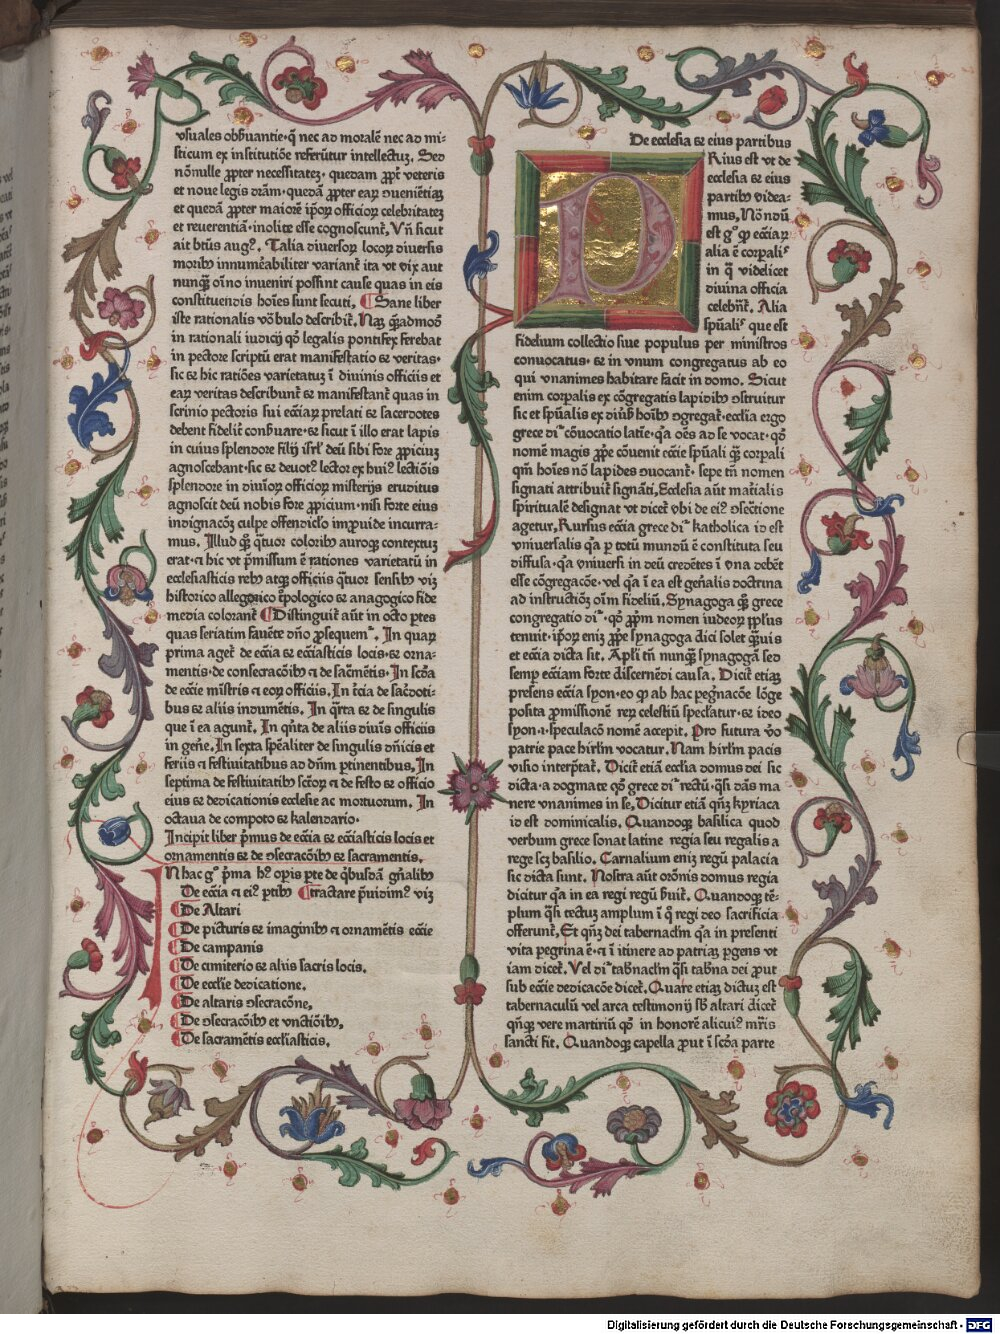 vsuales obẜuantie·q̄ nec ad moralē nec ad mi⸗
sticum ex institutiōe referūtur intellectuꝫ. Sed
nōnulle ꝓpter necessitateꝫ. quedam ꝓpt̄ veteris
et noue legis
et queda ꝓpter maiorē ip̄oꝝ officioꝝ celebritateꝫ
et reuerentiā·inolite esse cognoscunt̄. Vn̄ sicut
ait btūs augꝰ. Talia diuersoꝝ locoꝝ diuersis
moribꝰ innumerabiliter variant̄ ita vt vix aut
nunqꝫ oīno inueniri possint cause quas in eis
constituendis hoīes sunt secuti. Sane liber
iste rationalis vōbulo describit̄. Naꝫ qꝫadmodū
in rationali iudicij qd̄ legalis pontifex ferebat
in pectore scriptū erat manifestatio ⁊ veritas·
sic ⁊ hic ratiōes varietatuꝫ ī diuinis officiis et
eaꝝ veritas describunt̄ ⁊ manifestant̄ quas in
scrinio pectoris sui ecc̄iaꝝ prelati ⁊ sacerdotes
debent fidelit̄ conẜuare·⁊ sicut ī illo erat lapis
in cuius splendore filij isrl̄ deū sibi fore ꝓpiciuꝫ
agnoscebant·sic ⁊ deuotꝰ lector ex huiꝰ lectiōis
splendore in diuinoꝝ officioꝝ misterijs eruditus
agnoscit deū nobis fore ꝓpicium·nisi forte eius
indignacōꝫ culpe offendiclo īprouide incurra⸗
mus. Illud qꝫ q̄tuor coloribꝰ auroqꝫ contextuꝫ
erat·⁊ hic vt p̄missum ē rationes varietatū in
ecclesiasticis rebꝰ atqꝫ officiis q̄tuor sensibꝰ vꝫ
historico allegorico tropologico ⁊ anagogico fide
media colorant̄ Distinguit̄ aūt in octo ꝑtes
quas seriatim fauēte dn̄o ꝓsequemur. In quaꝝ
prima aget̄ de ecc̄ia ⁊ ecc̄iasticis locis·⁊ orna⸗
mentis·de consecracōibꝰ ⁊ de sacmētis. In scd̄a
de ecc̄ie mīstris ⁊ eoꝝ officiis. In t̄cia de sac̄doti⸗
bus ⁊ aliis indumētis. In q̄rta ⁊ de singulis
que ī ea agunt̄. In qn̄ta de aliis diuis officiis
in gen̄e. In sexta sp̄ealiter de singulis dn̄icis et
feriis ⁊ festiuitatibus ad dn̄m ꝑtinentibus. In
septima de festiuitatibꝰ sctōꝝ ⁊ de festo ⁊ officio
eius ⁊ dedicationis ecclesie ac mortuorum. In
octaua de compoto ⁊ kalendario·
Incipit liber pꝛ̄mus de ecc̄ia ⁊ ecc̄iasticis locis et
ornamentis ⁊ de ꝯsecracōibꝰ ⁊ sacramentis.
In hac gͦ pꝛ̄ma hꝰ opꝛ̄is parte de qb̓usdā gn̄alibꝰ
De ecc̄ia ⁊ eiꝰ ꝑtibꝰ tractare ꝓuidimꝰ vꝫ
De Altari
De picturis ⁊ imaginibꝰ ⁊ ornamētis ecc̄ie
De campanis
De cimiterio ⁊ aliis sacris locis.
De eccl̄ie dedicatione.
De altaris ꝯsecracōne,
De ꝯsecracōibꝰ ⁊ vnctiōibꝰ,
De sacramētis eccl̄iasticis.
De ecclesia ⁊ eius partibus
PRius est vt de
ecclesia ⁊ eius
partibꝰ videa⸗
mus, Nō
est gͦ ꝙ ecc̄iaꝝ
alia ē corꝑalis
in q̄ videlicet
diuina officia
celebn̄t. Alia
spūalis que est
fidelium collectio siue populus per ministros
conuocatus·⁊ in vnum congregatus ab eo
qui vnanimes habitare facit in domo. Sicut
enim corꝑalis ex cōgregatis lapidibꝰ ꝯstruitur
sic et spūalis ex diuẜ hoībꝰ ꝯgregat̄·eccl̄ia ergo
grece dr̄ cōuocatio latīe·q̄a oēs ad se vocat·qd̄
nomē magis ꝓprie cōuenit ecc̄ie spūali qꝫ corꝑali
qm̄ hoīes nō lapides ꝯuocant̄. sepe tn̄ nomen
signati attribuit̄ signāti, Ecclesia aūt mat̄ialis
spiritualē designat vt dicet̄ vbi de eiꝰ ꝯsec̄tione
agetur, Rursus ecc̄ia grece dr̄ katholica id est
vniuersalis q̄a ꝑ totū mundū ē constituta seu
diffusa·q̄a vniuersi in deū credētes ī vna debēt
esse cōgregacōe·vel q̄a ī ea est gen̄alis doctrina
ad instructiōꝫ oīm fideliū. Synagoga qꝫ grece
congregatio dr̄·qd̄ ꝓprm̄ nomen iudeoꝝ ꝓplus
tenuit·ip̄oꝝ enīꝫ ꝓprie synagoga dici solet qꝫuis
et ecc̄ia dicta sit. Apl̄i tn̄ nunqꝫ synagogā sed
semꝑ ecc̄iam forte discernēdi causa. Dicit̄ etiaꝫ
presens ecc̄ia syon·eo ꝙ ab hac peg̓nacōe lōge
posita ꝓmissionē reꝝ celestiū specl̄atur·⁊ ideo
syon·i·speculacō nomē accepit. Pro futura v̄o
patrie pace hirl̄m vocatur. Nam hirl̄m pacis
visio interp̄tat̄. Dicit̄ etiā eccl̄ia domus dei sic
dicta·a dogmate qd̄ grece dr̄ rectū·q̄si dās ma
nere vnanimes in se, Dicitur etiā qn̄ꝫ kyriaca
id est dominicalis. Quandoqꝫ basilica quod
verbum grece sonat latine regia seu regalis a
rege scꝫ basilio. Carnalium eniꝫ regū palacia
sic dicta sunt. Nostra aūt orōnis domus regia
dicitur q̄a in ea regi regū ẜuit̄. Quandoqꝫ tē⸗
plum q̄si tectuꝫ amplum ī q̄ regi deo sacrificia
offerunt̄, Et qn̄ꝫ dei tabernacl̄m q̄a in presenti
vita ꝑegrina ē·⁊ ī itinere ad patriaꝫ ꝑgens vt
iam dicet̄. Vel dr̄ tabn̄acl̄m q̄si tabn̄a dei ꝓut
sub ecc̄ie dedicacōe dicet̄. Quare etiaꝫ dictuꝫ est
tabernaculū vel arca testimonij sb̓ altari dicet̄
qn̄qꝫ vere martiriū qd̄ in honorē alicuiꝰ mr̄is
sancti sit. Quandoqꝫ capella ꝓut ī scd̄a parte
Digitalisierung gefördert durch die Deutsche Forschungsgemeinschaft - DFG